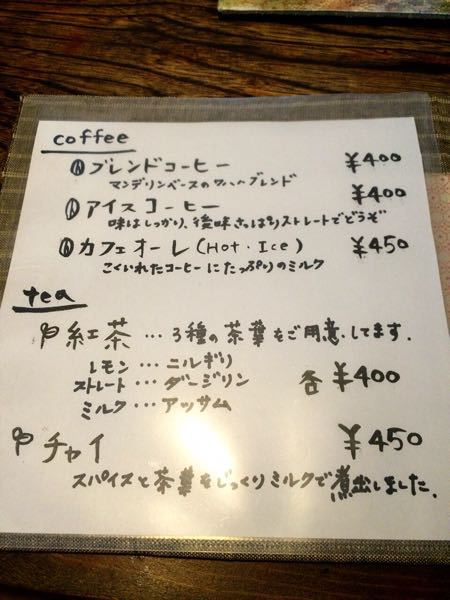 coffee
ブレンドコーヒー ¥400
マンデリンベースの ブレンド
アイスコーヒー ¥400
味はしっかり、後味さっぱりストレートでどうぞ
カフェオーレ(Hot・Ice) ¥450
こくいれたコーヒーにたっぷりのミルク
tea
紅茶…3種の茶葉をご用意してます.
レモン…ニルギリ
ストレート…ダージリン 各¥400
ミルク…アッサム
チャイ ¥450
スパイスと茶葉をじっくりミルクで煮出しました.